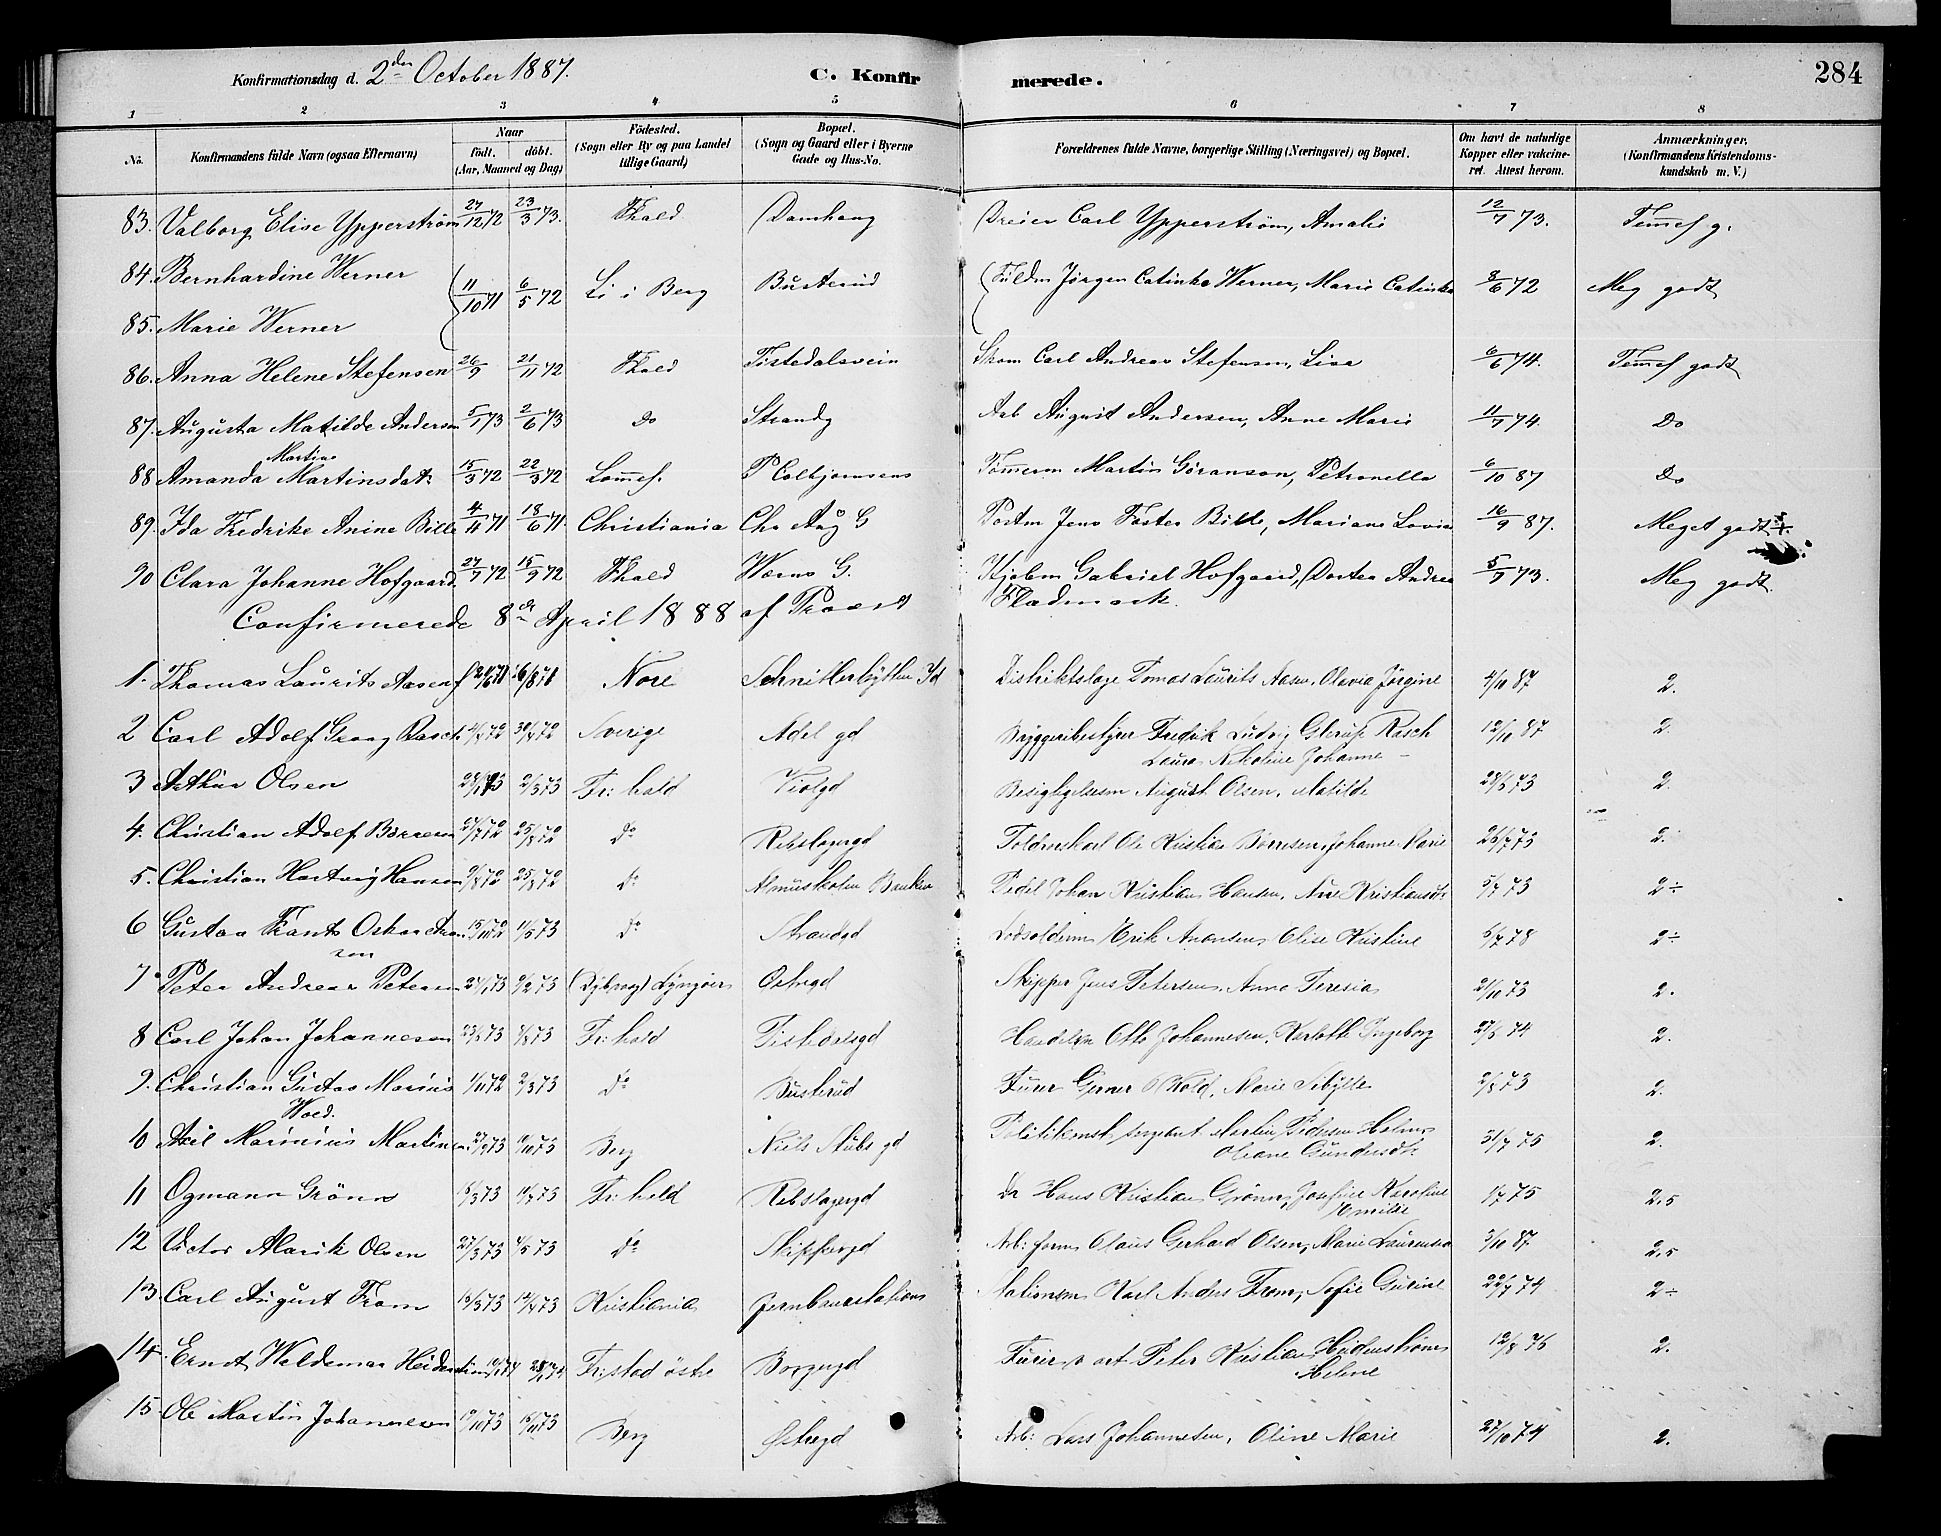 Konfirmationsdag d. 2den October 1887.
C. Konfirmerede.
284
1 2 3 4 5 6 7 8
No. Konfirmandens fulde Navn (ogsaa Efternavn) Naar født. døbt. (Aar, Maaned og Dag) Födested. (Sogn eller By og paa Landet tillige Gaard) Bopæl. (Sogn og Gaard eller i Byerne Gade og Hus-No. Forældrenes fulde Navne, borgerlige Stilling (Næringsvei) og Bopæl. Om havt de naturlige Kopper eller vakcineret. Attest herom. Anmærkninger. (Konfirmandens Kristendomskundskab m. V.)
83. Valborg Elise Ypperström 27/12 72 23/3 73. Fhald Damhaug Dreier Carl Ypperström, Amalie 12/7 73. Temmel g.
84. Bernhardine Werner 11/10 71 6/5 72 Li i Berg Busterud Fuldm Jørgen Catinka Werner, Marie Catinka 8/6 72 Meg godt
85. Marie Werner
86. Anna Helene Stefensen 26/9 21/11 72 Fhald Tistedalsvein Skom Carl Andreas Stefensen, Lisa 6/6 74. Temmel godt
87. Augusta Matilde Andersen 5/1 73 2/6 73 Do Strandg Arb August Andersen, Anne Marie 11/7 74. Do
88 Amanda Martine Martinsdat. 15/3 72 22/3 72 Lommel. P Colbjørnsens Tømmerm Martin Göranson, Petronella 6/10 87 Do
89. Ida Fredrike Anine Bille 4/4 71 18/6 71. Christiania Chr Aug G Portm Jens Foster Bille, Mariane Lovise 16/9 87. Meget godt
90 Clara Johanne Hofgaard. 27/7 72 15/9 72 Fhald Wærns G. Kjøbm Gabriel Hofgaard, Dortea Andrea Fladmark. 5/7 73. Meg godt
Confirmerede 8de April 1888 af Provst
1. Thomas Laurits Aasen 6/8 71 Nore Schnitlerhytten Id Distriktslæge Tomas Laurits Aasen, Olavia Jørgine 4/10 87 2.
2 Carl Adolf Rasch 30/4 72 Sverige Adel gd Bryggeribestyrer Fredrik Ludvig Glerup Rasch Laura Nikoline Johanne 12/10 87 2.
3 Arthur Olsen 2/3 73 Fr: hald Violgd Besigtigelsesm August Olsen, Matilde 28/6 73 2.
4. Christian Adolf Børresen 25/8 72 Do Rebslagergd Toldrorskarl Ole Kristian Børresen, Johanne Marie 26/7 73 2.
5. Christian Hartvig Hansen 25/8 72 Do Almueskolen Banken Pedel Johan Kristian Hansen, Ane Kristiansdt. 5/7 73 2÷
6 Gustav Frants Oskar Aronsen 15/10 72 1/5 73 Do Strandgd Lodsoldermand Erik Aronsen, Elise Kristine 6/7 78 2÷
7. Peter Andreas Petersen 24/1 73 9/2 73 (Dybvag) Lyngøer Ostregd Skipper Jens Petersen, Anne Teresia 21/10 73 2.
8 Carl Johan Johannesen 23/5 73 3/8 73 Fr: hald Tiskaresgd Handelsm Otto Johannesen, Karlotte Ingeborg 27/6 74 2.
9. Christian Gustav Marius Wold. 1/11 72 2/3 73 Do Busterud Furer Gerner Wold, Marie Sibylle 2/8 73 2.
10 Axil Marinius Martinsen 27/7 73 Berg Niels Stubs gd Politikonst sergeant Martin Pedersen Holm, Oleane Gundersdt 31/7 75 2.
11 Ogmann Grönn 16/3 73 14/4 73 Fr: hald Rebslagergd Do Hans Kristian Grönn, Josefine Karoline Emilie 1/7 75 2,5
12 Victor Alarik Olsen 27/3 73 4/5 73 Do Skippergd Arb: form Olaus Gerhard Olsen, Marie Laurensa 3/10 87 2,5
13. Carl August From 16/3 73 14/4 73 Kristiania Jernbanestation Stationsm Karl Anders From, Sofie Gurine 22/7 74 2÷
14. Ernst Waldemar Heidenström Fr:stad östre Borgergd Furer v art Peter Kristian Heidenström, Helene 12/8 76 2.
15. Ole Martin Johannesen 19/10 73 16/11 73 Berg Østregd Arb: Lars Johannesen, Oline Marie 27/10 74 2.